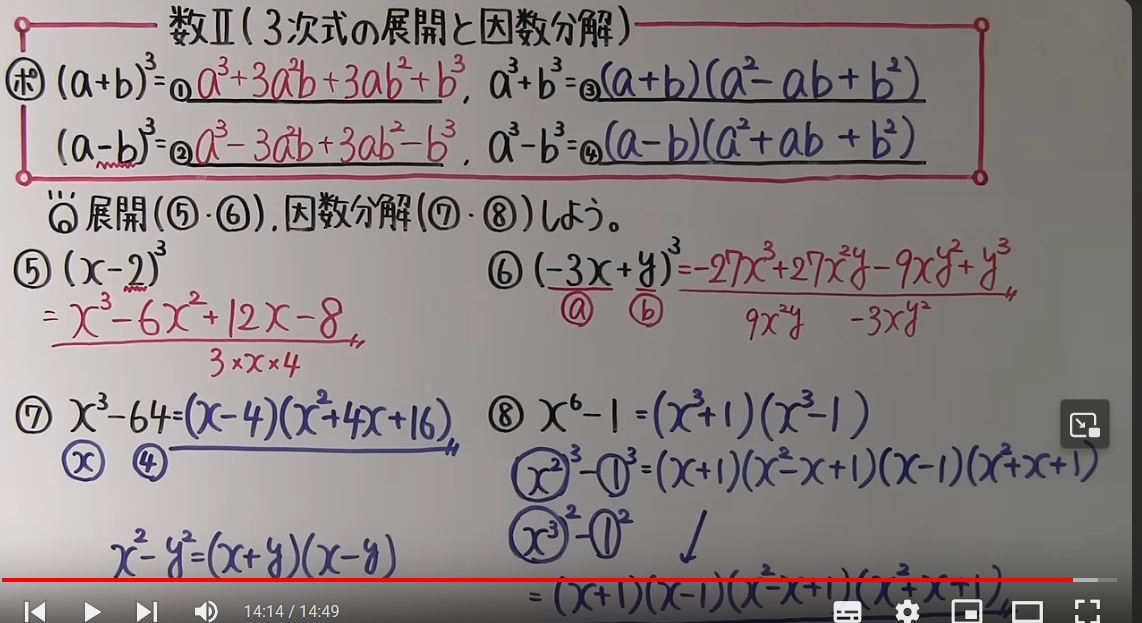 数Ⅱ(3次式の展開と因数分解)
ポ (a+b)³=①a³+3a²b+3ab²+b³, a³+b³=③(a+b)(a²-ab+b²)
(a-b)³=②a³-3a²b+3ab²-b³, a³-b³=④(a-b)(a²+ab+b²)
展開(⑤・⑥),因数分解(⑦・⑧)しよう。
⑤ (x-2)³
= x³-6x²+12x-8
3×x×4
⑥ (-3x+y)³=-27x³+27x²y-9xy²+y³
ⓐ ⓑ 9x²y -3xy²
⑦ x³-64=(x-4)(x²+4x+16)
ⓧ ④
x²-y²=(x+y)(x-y)
⑧ x⁶-1=(x³+1)(x³-1)
(x²)³-①³=(x+1)(x²-x+1)(x-1)(x²+x+1)
(x³)²-①²
=(x+1)(x-1)(x²-x+1)(x²+x+1)
14:14 / 14:49